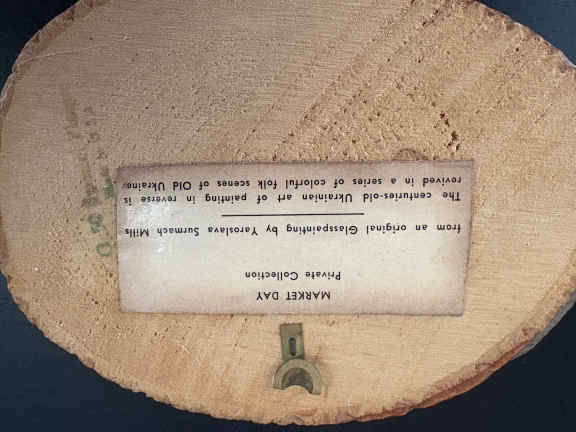 MARKET DAY
Private Collection
from an original Glasspainting by Yaroslava Surmach Mills
The centuries-old Ukrainian art of painting in reverse is
revived in a series of colorful folk scenes of Old Ukraine.